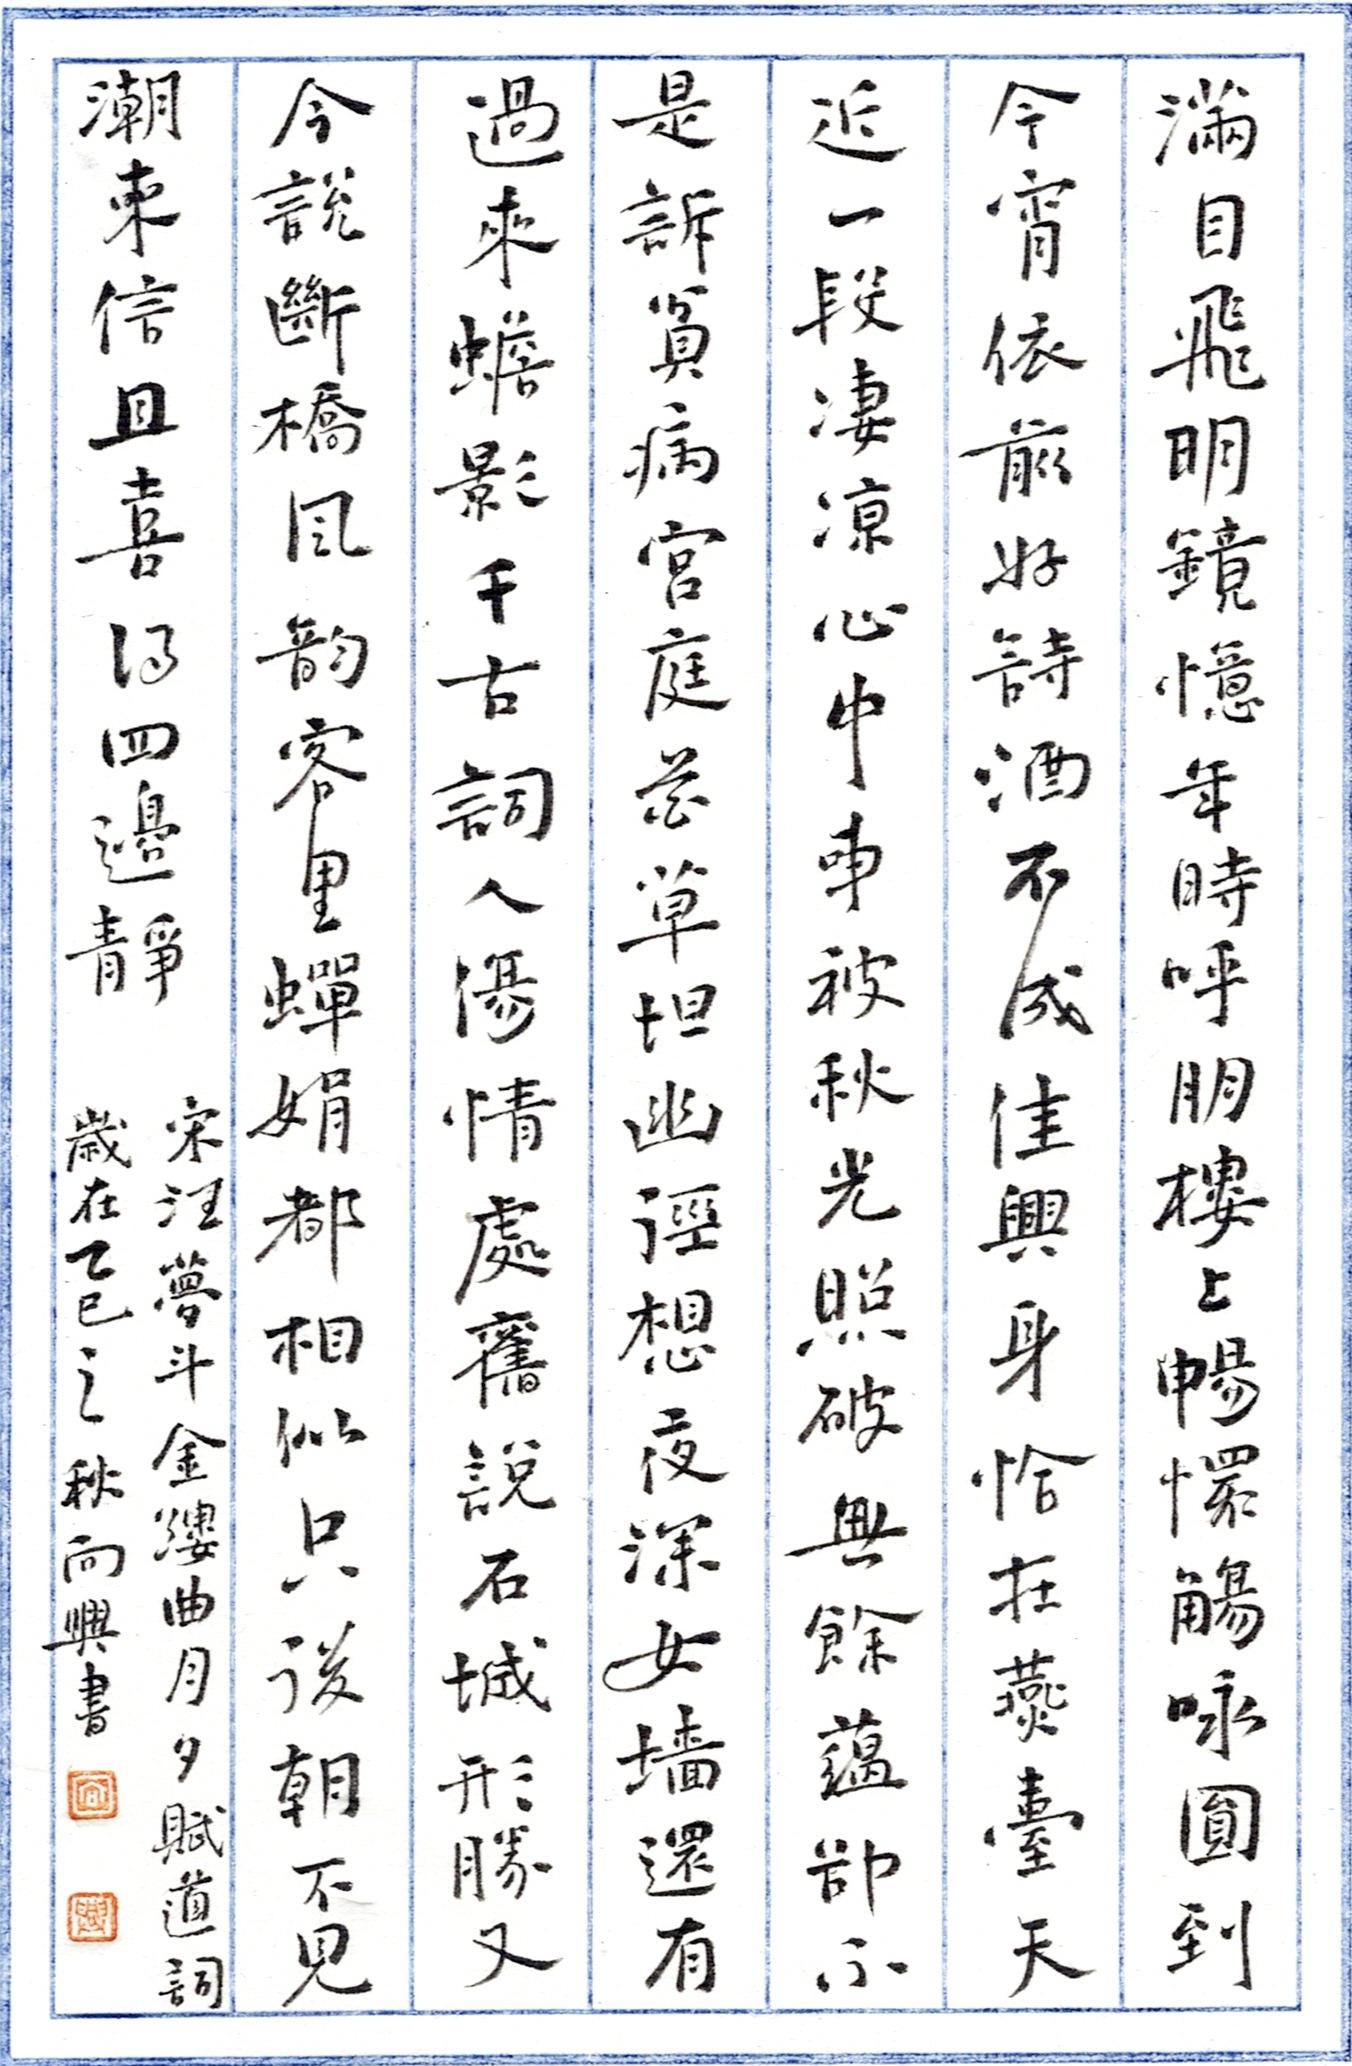 滿目飛明鏡憶年時呼朋樓上暢懷觴咏圓到
今宵依前好詩酒不成佳興身恰在燕臺天
近一段凄凉心中事被秋光照破無餘蘊卻不
是訴貧病宮庭花草坦幽逕想夜深女墙還有
過來蟾影千古詞人傷情處舊說石城形勝又
今說斷橋風韵客里蟬娟都相似只後朝不見
潮来信且喜得四邊靜
宋汪夢斗金縷曲月夕賦道詞
歲在乙巳之秋向興書